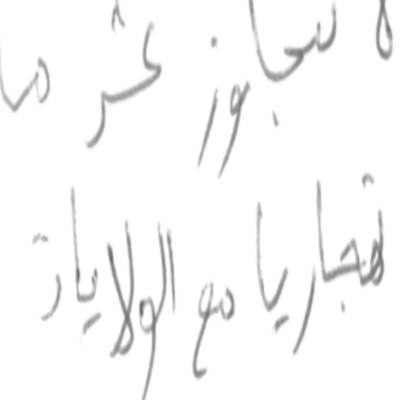 لا تتجاوز عشر ما
تجاريا مع الولايات